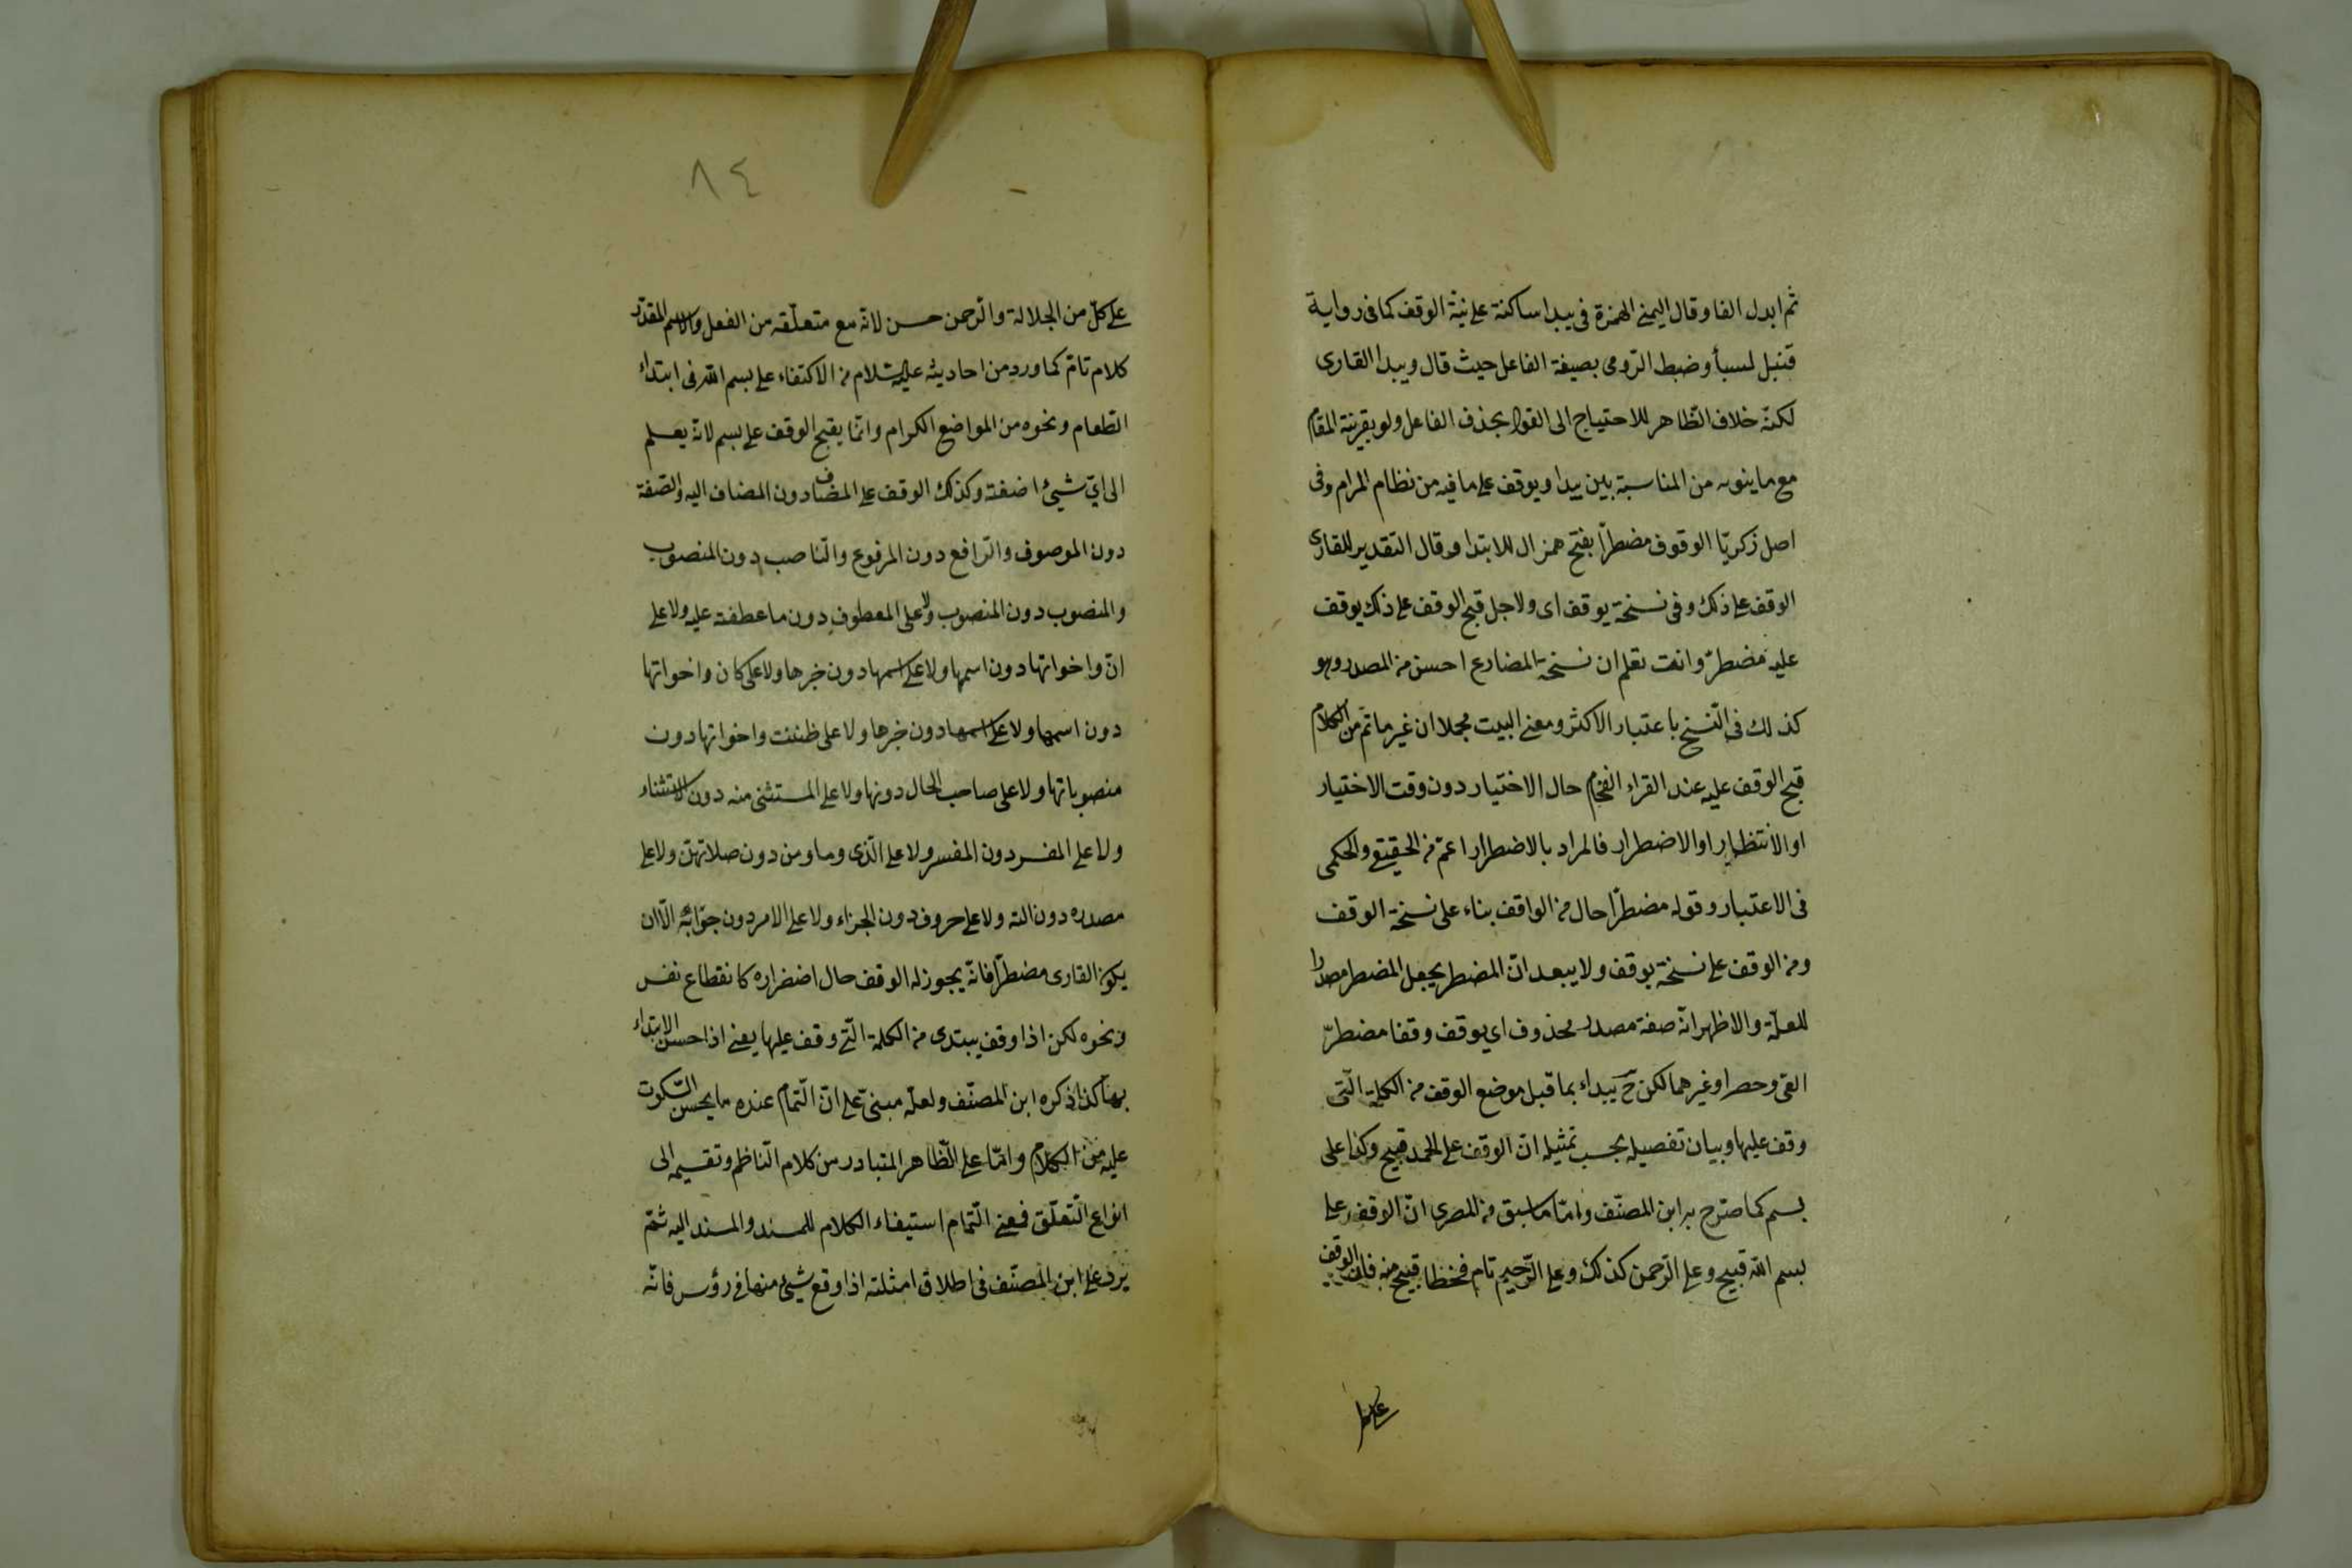 ثم ابدل الفا وقال اليمنى الهمزة فى يبدا ساكنة على نية الوقف كما فى رواية
قنبل لسبأ وضبط الرّومى بصيغة الفاعل حيث قال ويبدا القارى
لكنّه خلاف الظّاهر للاحتياج الى القول بحذف الفاعل ولو بقرينة المقام
مع ما ينوبه من المناسبة بين يبدا ويوقف على ما فيه من نظام المرام وفى
اصل زكريّا الوقوف مضطرّا بفتح همز ال للابتدا وقال التقدير للقارى
الوقف على ذلك وفى نسخة يوقف اى ولاجل قبح الوقف على ذلك يوقف
عليه مضطرّ وانت تعلم ان نسخة المضارع احسن من المصدر وهو
كذلك فى النّسخ باعتبار الاكثر ومعنى البيت مجملا ان غير ما تم من الكلام
قبح الوقف عليه عند القراء الفخام حال الاختيار دون وقت الاختيار
او الانتظار او الاضطرار فالمراد بالاضطرار اعمّ من الحقيقى والحكمى
فى الاعتبار وقوله مضطرّا حال من الواقف بناء على نسخة الوقف
ومن الوقف على نسخة يوقف ولا يبعد انّ المضطر يجعل المضطر مصدرا
للعلّة والاظهر انّه صفة مصدر محذوف اى يوقف وقفا مضطرّ
القى وحصرا وغيرهما لكن ح يبداء بما قبل موضع الوقف من الكلمة الّتى
وقف عليها وبيان تفصيله بحسب تمثيله انّ الوقف على الحمد قبيح وكذا على
بسم كما صرّح به ابن المصنّف وامّا ما سبق من المصرى انّ الوقف على
بسم الله قبيح وعلى الرّحمن كذلك وعلى الرّحيم تام فخطا قبيح منه فان الوقف
على كل
٨٤
على كلّ من الجلالة والرّحمن حسن لانّه مع متعلّقه من الفعل والاسم المقدّر
كلام تامّ كما ورد من احاديثه عليه السّلام من الاكتفاء على بسم الله فى ابتداء
الطّعام ونحوه من المواضع الكرام وانّما يقبح الوقف على بسم لانّه يعلم
الى اىّ شيئ اضفته وكذلك الوقف على المضاف دون المضاف اليه والصّفة
دون الموصوف والرّافع دون المرفوع والنّاصب دون المنصوب
والمنصوب دون المنصوب ولا على المعطوف دون ما عطفته عليه ولا على
انّ واخواتها دون اسمها ولا على اسمها دون خبرها ولا على كان واخواتها
دون اسمها ولا على اسمها دون خبرها ولا على ظننت واخواتها دون
منصوباتها ولا على صاحب الحال دونها ولا على المستثنى منه دون الاستثناء
ولا على المفسر دون المفسر ولا على الّذى وما ومن دون صلاتهنّ ولا على
مصدره دون الته ولا على حروف دون الجزاء ولا على الامر دون جوّابه الّا ان
يكون القارى مضطرّا فانّه يجوز له الوقف حال اضضراره كانقطاع نفس
ونحوه لكن اذا وقف يبتدى من الكلمة الّتى وقف عليها يعنى اذا حسن الابتداء
بها كذا ذكره ابن المصنّف ولعلّه مبنىّ على انّ التّمام عنده ما يحسن السّكوت
عليه من الكلام وامّا على الظّاهر المتبادر من كلام النّاظم وتقسيمه الى
انواع التّعلّق فمعنى التّمام استيفاء الكلام للمسند والمسند اليه ثمّ
يرد على ابن المصنّف فى اطلاق امثلته اذا وقع شيئ منها فى رؤس فانّه